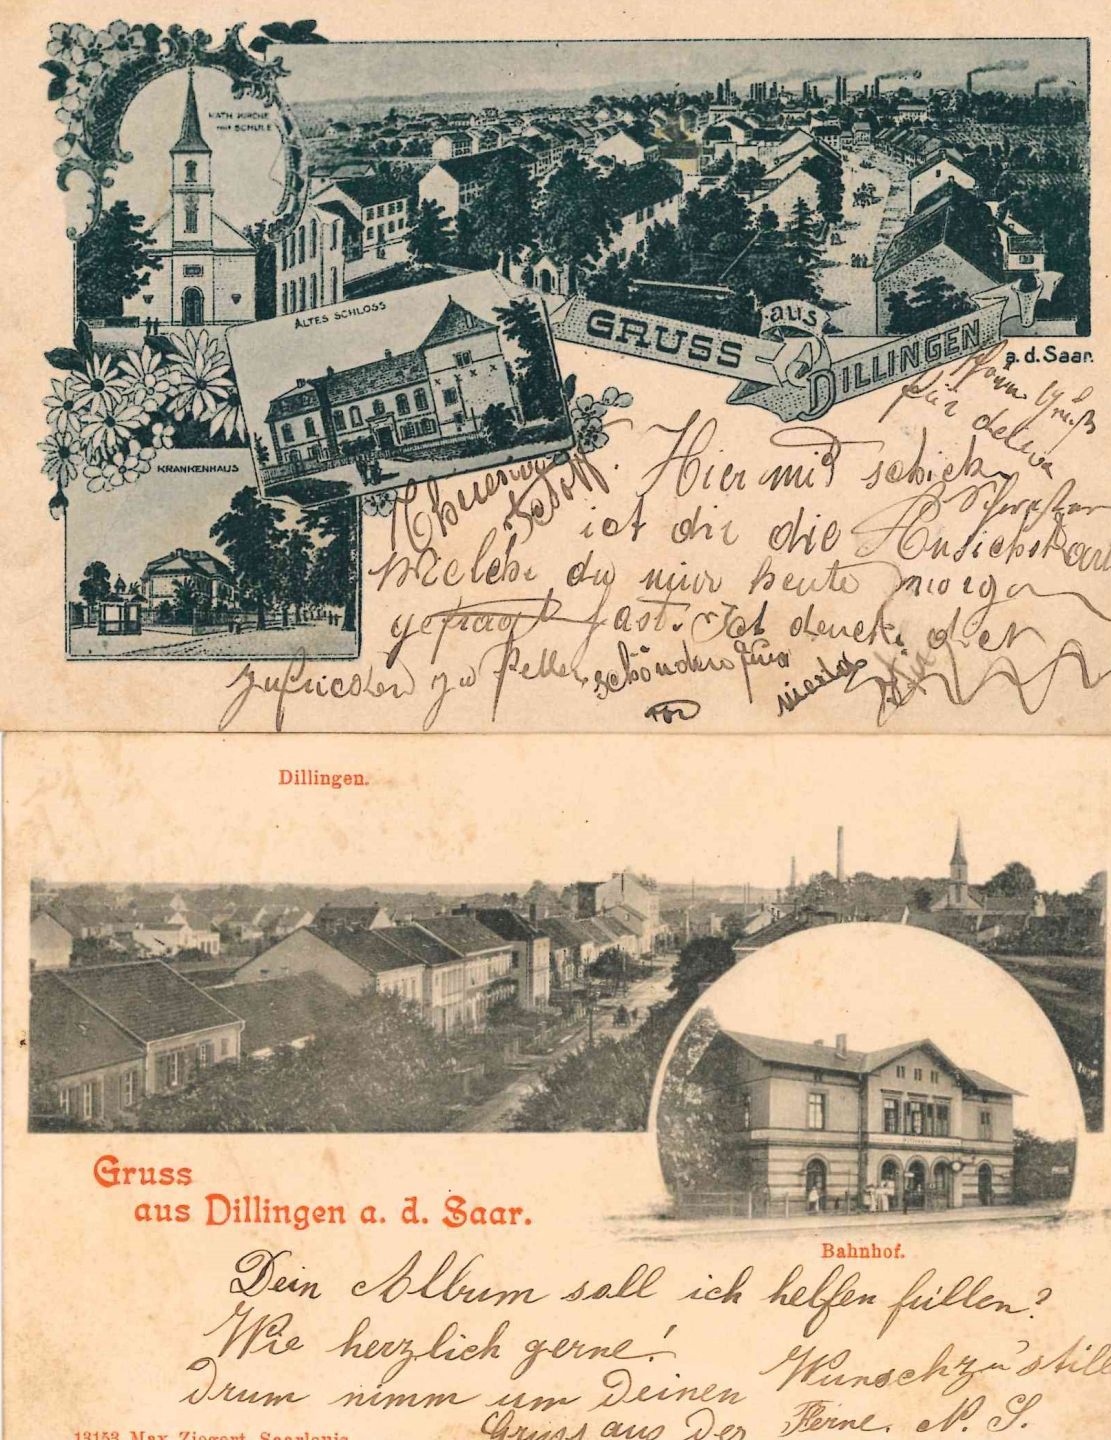 KATH. KIRCHE
MIT SCHULE
ALTES SCHLOSS
GRUSS aus DILLINGEN
a. d. Saar.
KRANKENHAUS
für deine
Hiermit schick
ich dir die Ansichtskart
Welche du mir heute morgen
gefragt hast. Ich denke du
zufrieden zu
Dillingen.
Gruss
aus Dillingen a. d. Saar.
Bahnhof.
Dein Album soll ich helfen füllen?
Wie herzlich gerne!
Drum nimm um Deinen Wunsch zu still
Gruss aus der Ferne. N. S.
13153 Max Ziegert, Saarlouis